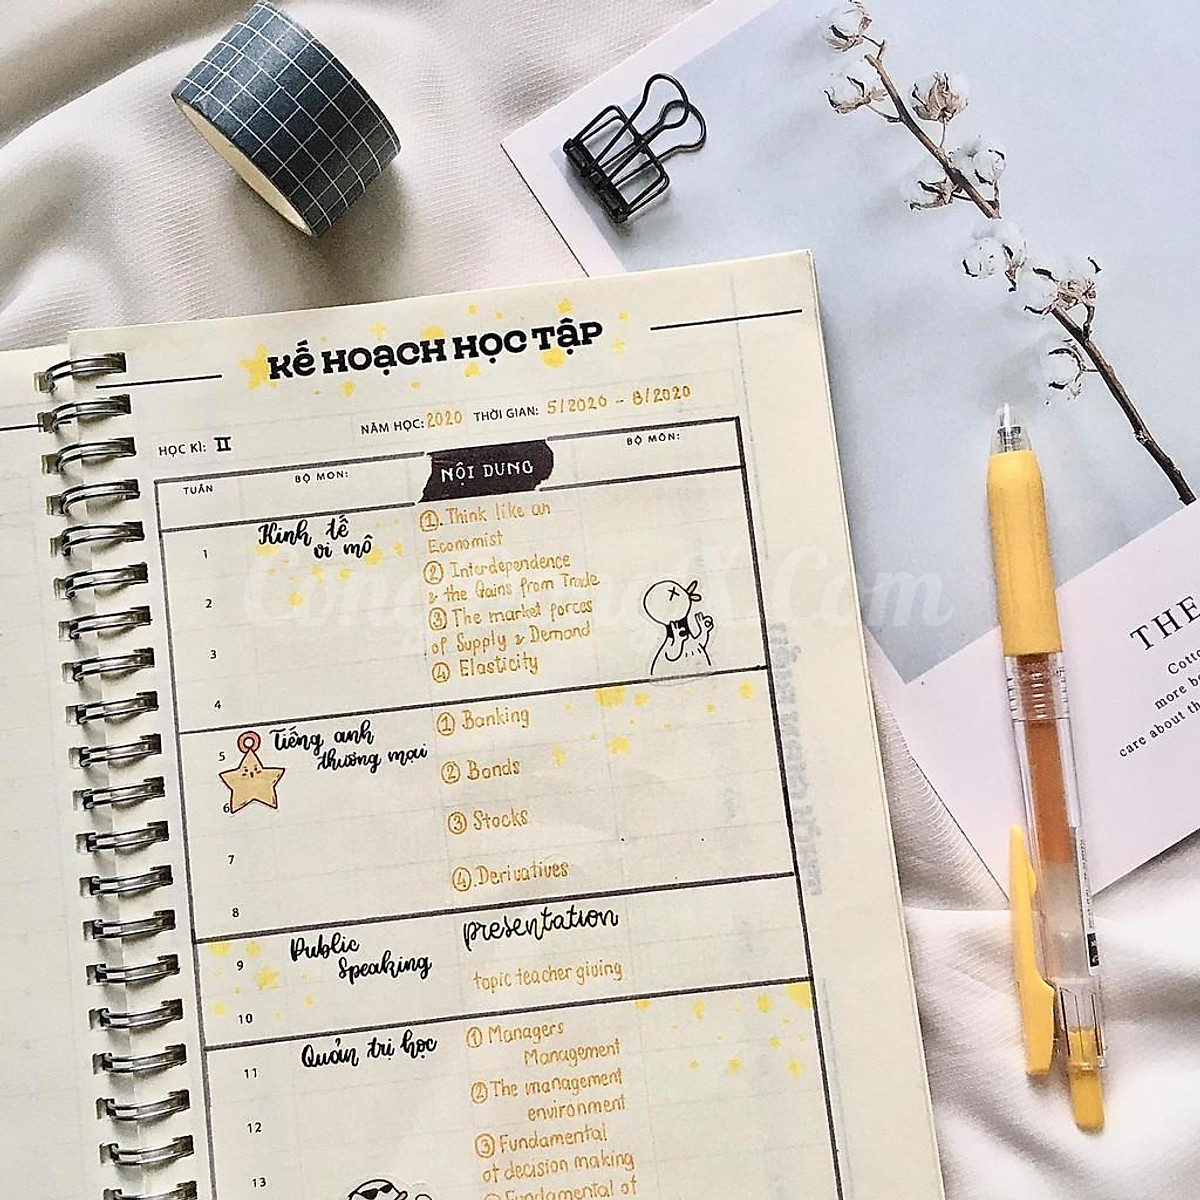 KẾ HOẠCH HỌC TẬP
HỌC KÌ: II
NĂM HỌC: 2020 THỜI GIAN: 5/2020 - 8/2020
TUẦN
BỘ MÔN:
NỘI DUNG
BỘ MÔN:
1
2
3
4
Kinh tế
vi mô
①. Think like an
Economist
② Interdependence
& the Gains from Trade
③ The market forces
of Supply & Demand
④ Elasticity
5
6
7
8
Tiếng anh
thương mại
① Banking
② Bonds
③ Stocks
④. Derivatives
9
10
Public
Speaking
presentation
topic teacher giving
11
12
13
Quản trị học
① Managers
Management
② The management
environment
③ Fundamental
of decision making
Fundamental of
THE
Cotto
more be
care about th
.Com